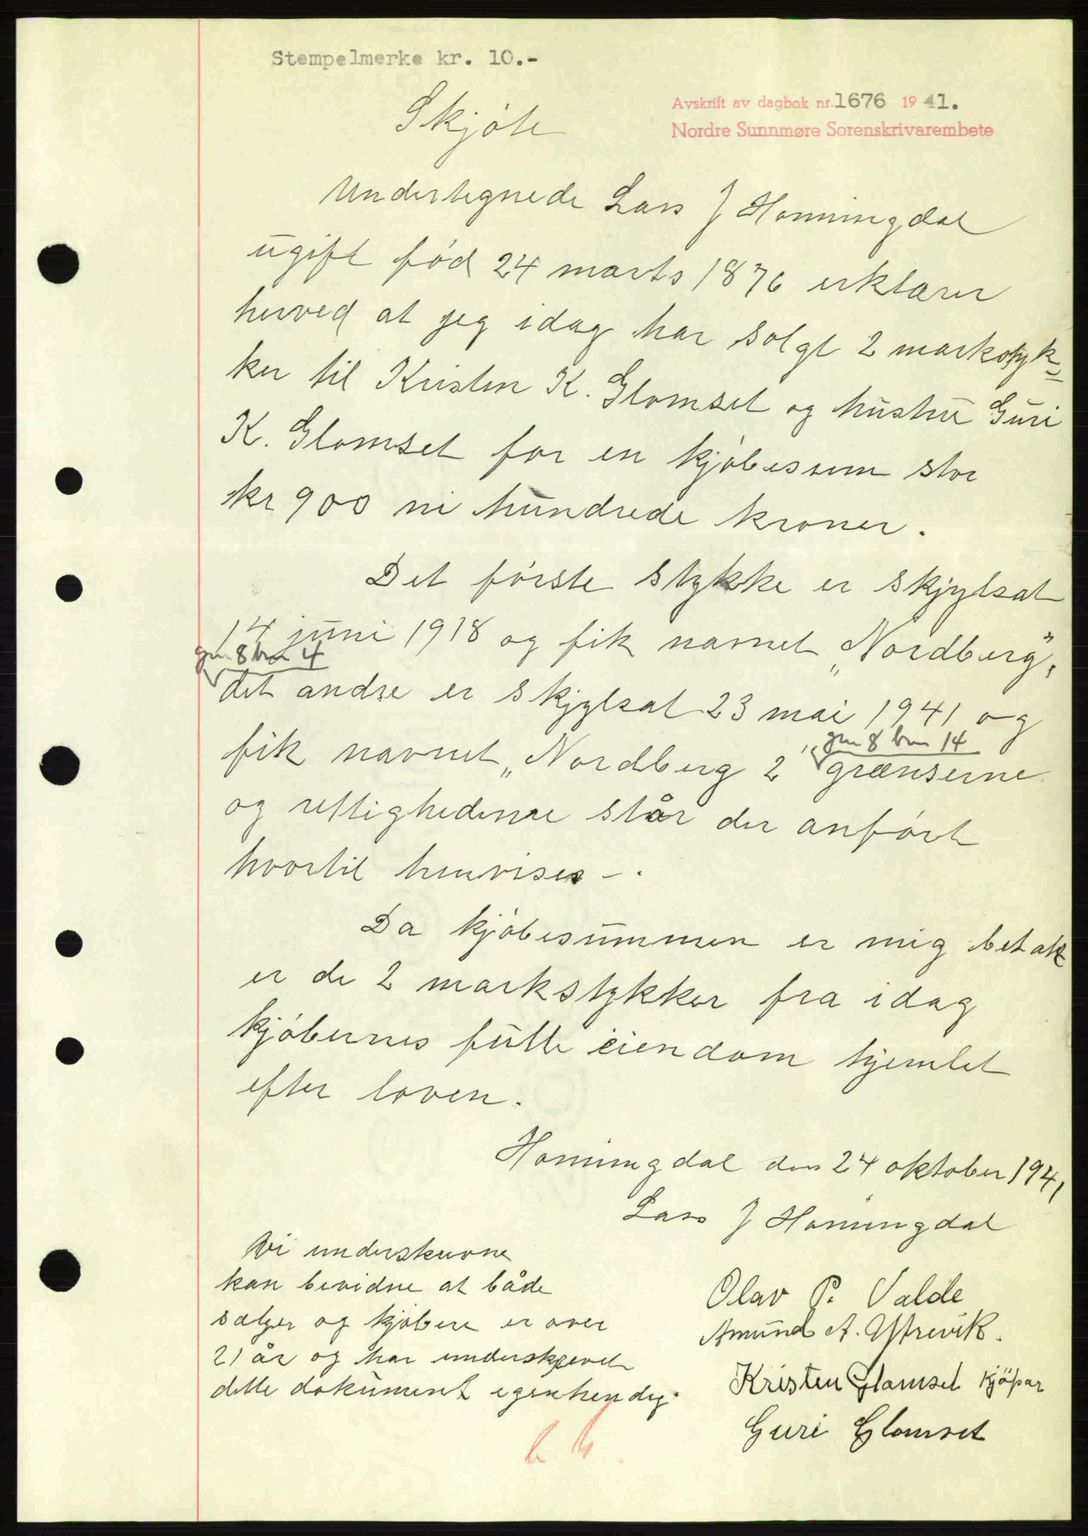 Stempelmerke kr. 10.-
Avskrift av dagbok nr. 1676 1941.
Nordre Sunnmøre Sorenskrivarembete
Skjöte
Undertegnede Lars J Honningdal
ugift fød 24 marts 1876 erklærer
herved at jeg idag har solgt 2 markstyk=
ker til Kristen K. Glomset og hustru Guri
K. Glomset for en kjöbessum stor
kr 900 ni hundrede kroner.
Det förste stykke er skjylsat
14 juni 1918 og fik navnet „Nordberg",
gnr 8 bnr 4
det andre er skjylsat 23 mai 1941 og
gnr 8 bnr 14
fik navnet „Nordberg 2" grænserne
og rettighederne står der anfört
hvortil henvises -.
Da kjöbesummen er mig betalt
er de 2 markstykker fra idag
kjöbernes fulle eiendom hjemlet
efter loven.
Honningdal den 24 oktober 1941
Lars J Honningdal
Vi underskrevne
kan bevidne at både
sælger og kjöbere er over
21 år og har underskrevet
dette dokument egenhendig.
Olav P. Valde
Amund A. Ytrevik.
Kristen Glomset kjöpar
Guri Glomset